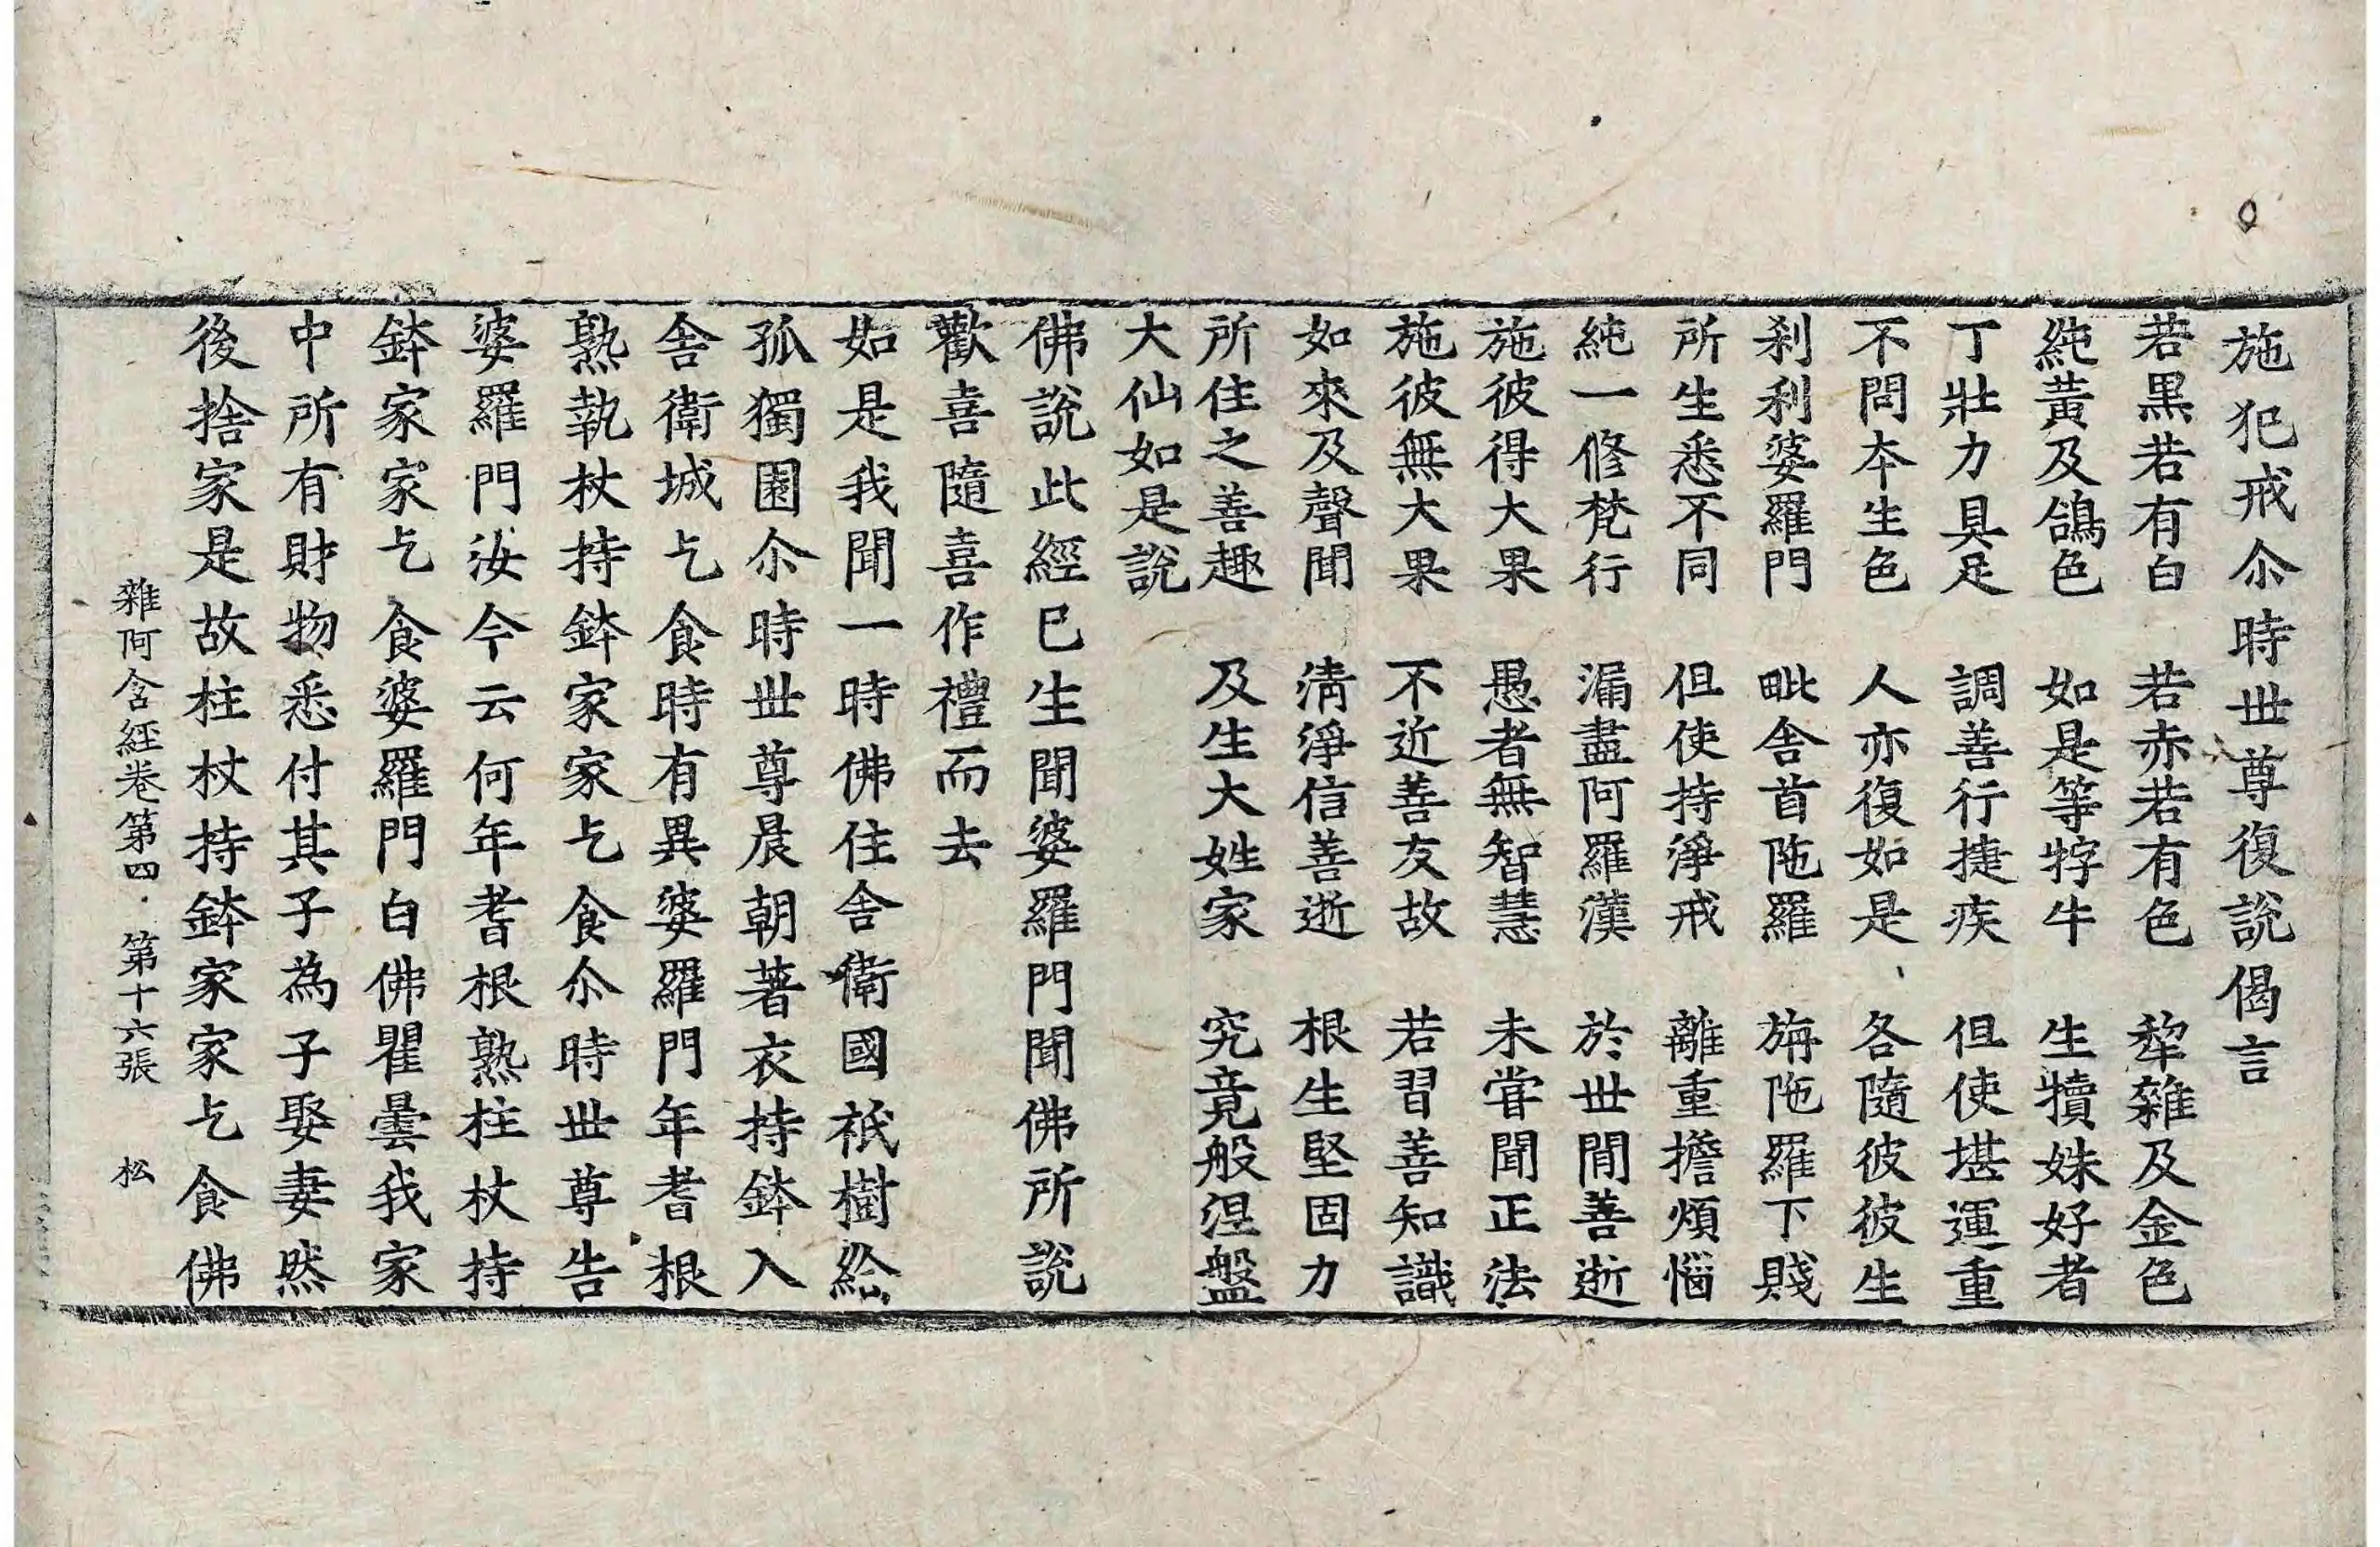 施犯戒尒時世尊復說偈言
若黑若有白　若赤若有色　犂雜及金色
純黃及鴿色　如是等牸牛　生犢姝好者
丁壯力具足　調善行捷疾　但使堪運重
不問本生色　人亦復如是　各隨彼彼生
刹利婆羅門　毗舍首陁羅　旃陁羅下賤
所生悉不同　但使持淨戒　離重擔煩惱
純一修梵行　漏盡阿羅漢　於世閒善逝
施彼得大果　愚者無智慧　未甞聞正法
施彼無大果　不近善友故　若習善知識
如來及聲聞　淸淨信善逝　根生堅固力
所住之善趣　及生大姓家　究竟般涅盤
大仙如是說
佛說此經已生聞婆羅門聞佛所說
歡喜隨喜作禮而去
如是我聞一時佛住舍衛國祇樹給
孤獨園尒時世尊晨朝著衣持鉢入
舍衛城乞食時有異婆羅門年耆根
熟執杖持鉢家家乞食尒時世尊告
婆羅門汝今云何年耆根熟柱杖持
鉢家家乞食婆羅門白佛瞿曇我家
中所有財物悉付其子為子娶妻然
後捨家是故柱杖持鉢家家乞食佛
雜阿含經卷第四　第十六張　松